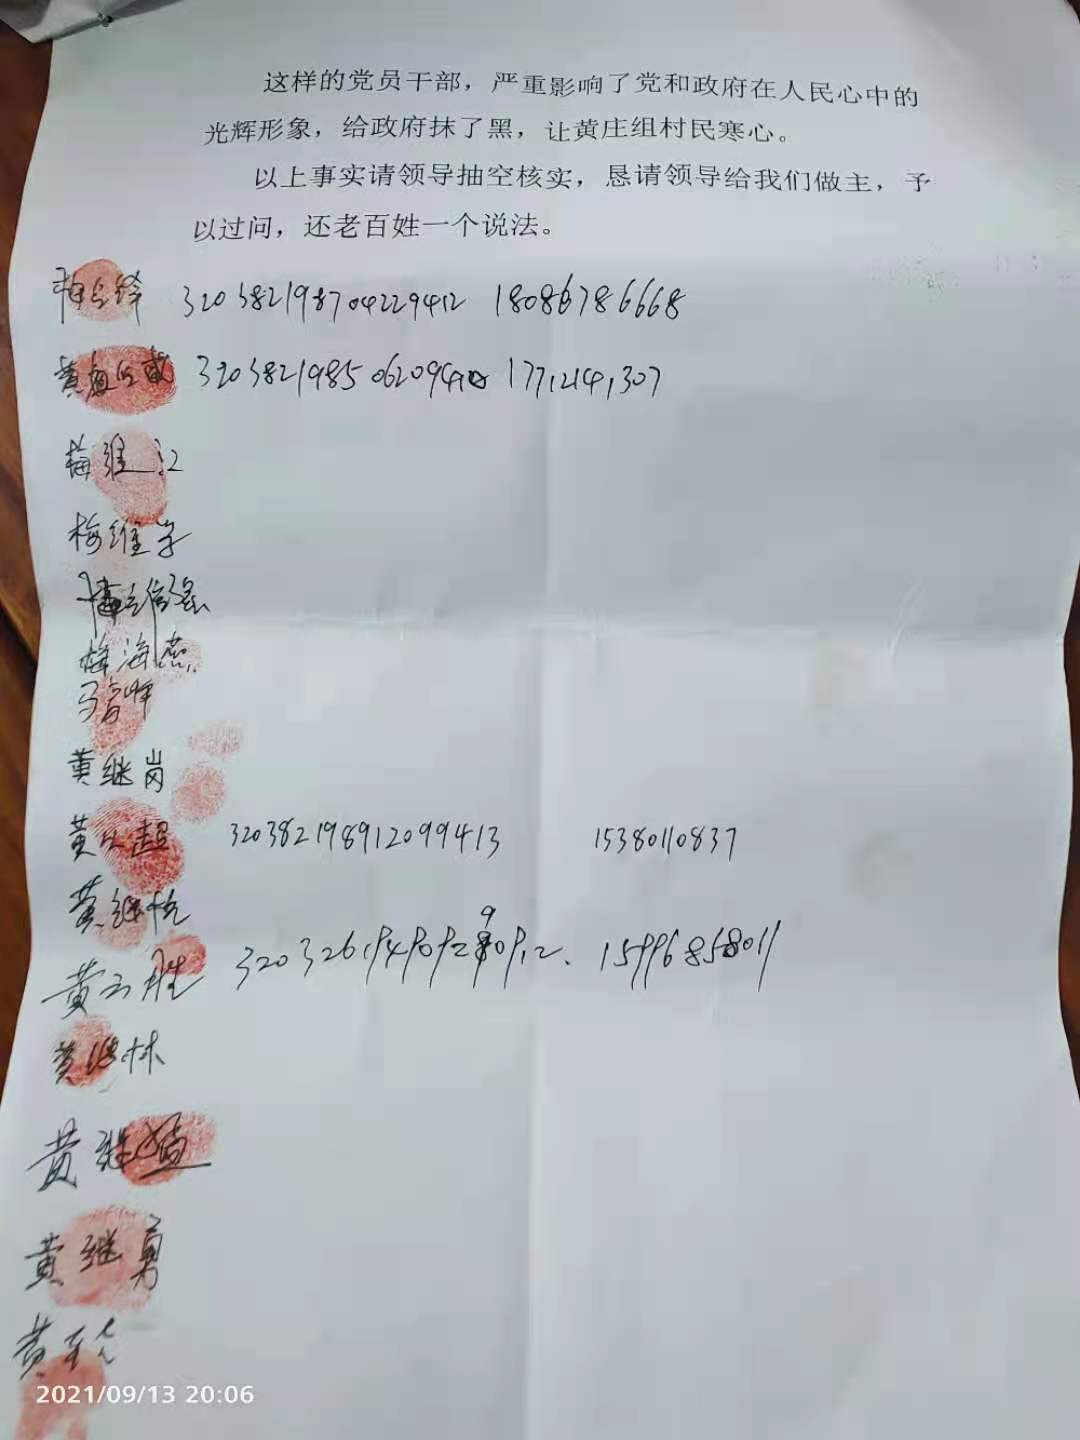 这样的党员干部，严重影响了党和政府在人民心中的
光辉形象，给政府抹了黑，让黄庄组村民寒心。
以上事实请领导抽空核实，恳请领导给我们做主，予
以过问，还老百姓一个说法。
320382198704229412 18086786668
黄 320382198506209410 17712141307
梅维江
梅维学
梅维强
梅海燕
马
黄继岗
黄 超 320382198912099413 15380110837
黄继
黄 胜 320326 15996858011
黄继林
黄继猛
黄继勇
黄
2021/09/13 20:06